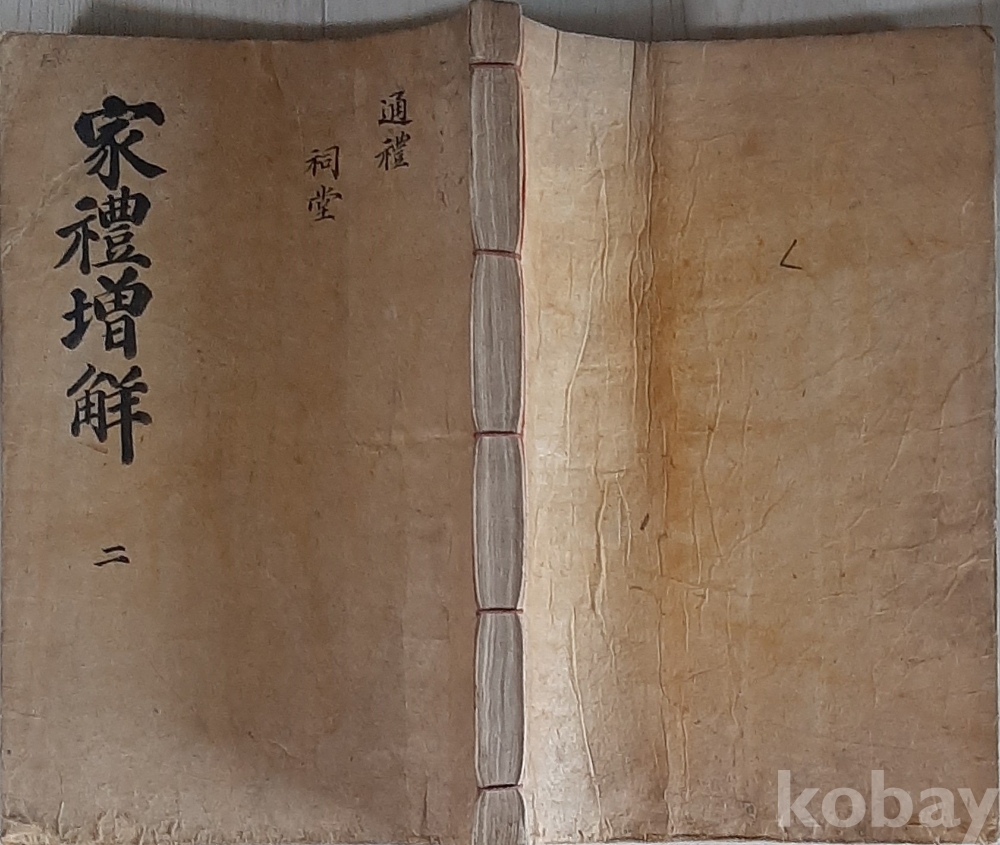 家禮增解
二
通禮
祠堂
kobay